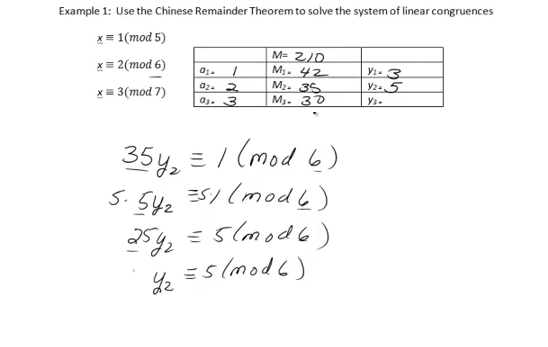 Example 1: Use the Chinese Remainder Theorem to solve the system of linear congruences
x ≡ 1(mod 5)
x ≡ 2(mod 6)
x ≡ 3(mod 7)
M= 210
a₁= 1 M₁= 42 y₁= 3
a₂= 2 M₂= 35 y₂= 5
a₃= 3 M₃= 30 y₃=
35y₂ ≡ 1 (mod 6)
5·5y₂ ≡5·1 (mod 6)
25y₂ ≡ 5(mod 6)
y₂ ≡ 5(mod 6)